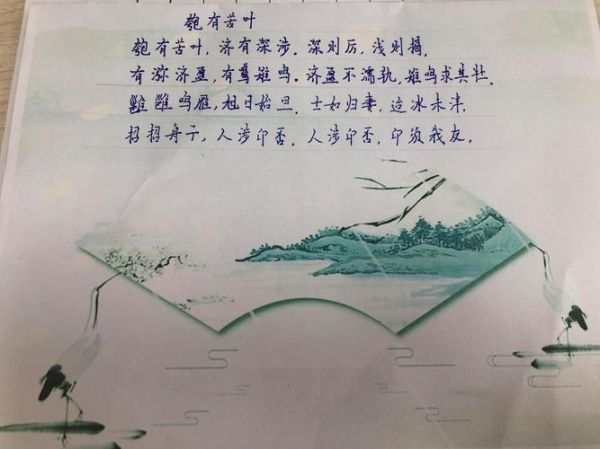 匏有苦叶
匏有苦叶，济有深涉。深则厉，浅则揭。
有渳济盈，有鷕雉鸣。济盈不濡轨，雉鸣求其牡。
雝雝鸣雁，旭日始旦。士如归妻，迨冰未泮。
招招舟子，人涉卬否。人涉卬否，卬须我友。